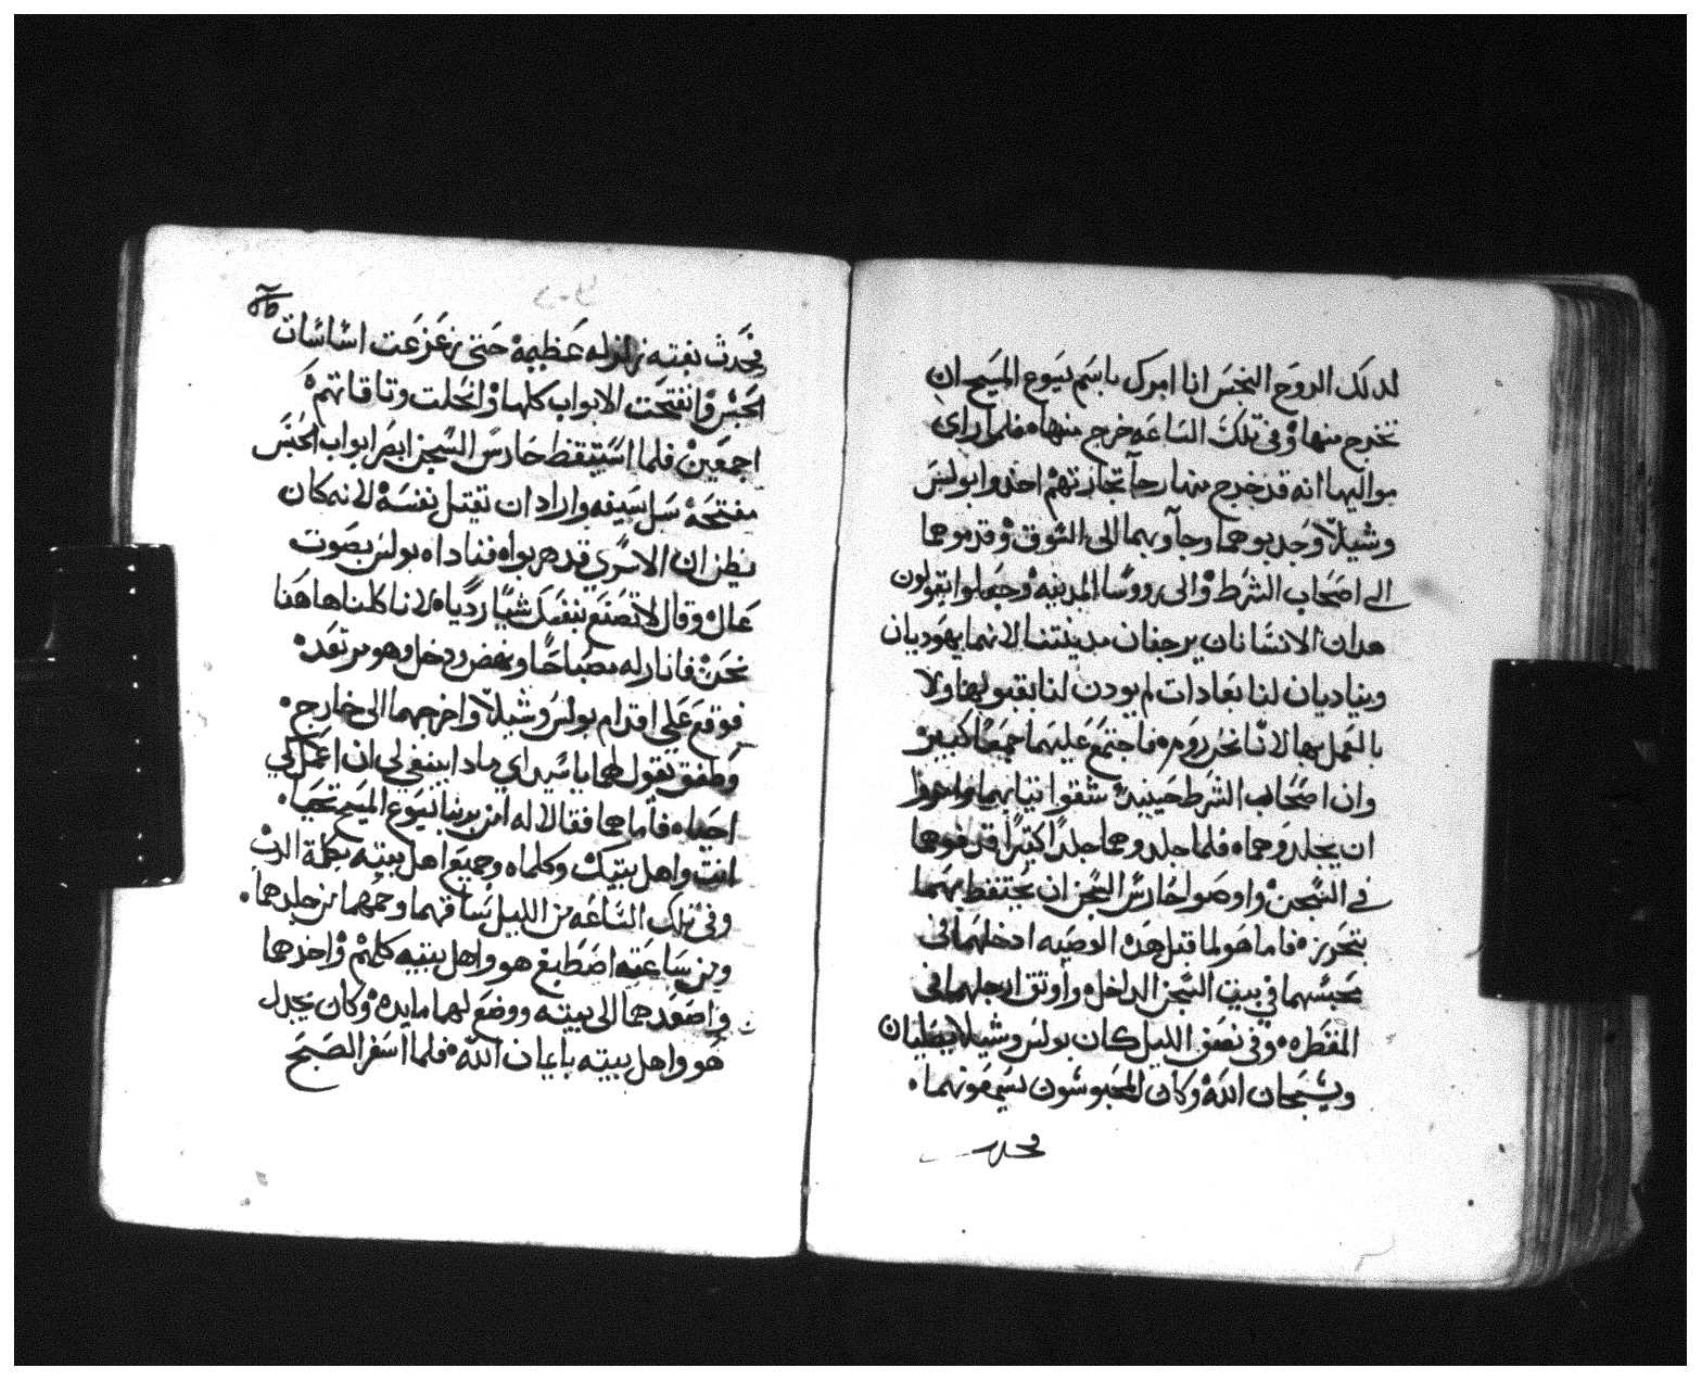 لذلك الروح النجس انا امرك باسم يسوع المسيح ان
تخرج منها وفي تلك الساعه خرج منها ه فلما راي
مواليها انه قد خرج منها رجآ تجارتهم اخذوا بولس
وشيلا وجدبوهما وجآو بهما الى السوق وقدموهما
الى اصحاب الشرط والى رووسا المدينه وجعلوا يقولون
هدان الانسانان يرجفان مدينتنا لانهما يهوديان
ويناديان لنا بعادات لم يودن لنا بقبولها ولا
بالعمل بها لاننا نحن روم ه فاجتمع عليهما جمعا كبير
وان اصحاب الشرط حينيد شقوا تيابهما وامروا
ان يجلدوهما ه فلما جلدوهما جلدا كتيرا قدفوهما
في السجن واوصوا حارس السجن ان يحتفظ بهما
بتحريز ه فاما هو لما قبل هده الوصيه ادخلهما في
محبسهما في بيت السجن الداخل ه واوتق ارجلهما في
المقطره ه وفي نصف الليل كان بولس وشيلا يصليان
ويسبحان الله وكان المحبوسون يسمعونهما ه
فحدث
فحدث بغته زلزله عظيمه حتى تزعزعت اساسات
الحبس وانفتحت الابواب كلها وانحلت وتاقاتهم
اجمعين فلما استيقظ حارس السجن ابصر ابواب الحبس
مفتحه سل سيفه واراد ان يقتل نفسه لانه كان
يظن ان الاسري قد هربوا ه فناداه بولس بصوت
عال وقال لا تصنع بنفسك شيا رديا ه لاننا كلنا هاهنا
نحن فانار له مصباحا ونهض ودخل وهو مرتعد ه
فوقع علي اقدام بولس وشيلا واخرجهما الى خارج ه
وطفق يقول لهما يا سيداي مادا ينبغي لي ان اعمل لكي
احيا ه فاما هما فقالا له امن بربنا يسوع المسيح تحيا ه
انت واهل بيتك وكلماه وجميع اهل بيته بكلمة الرب
وفي تلك الساعه من الليل ساقهما وحمهما من جلدهما ه
ومن ساعته اصطبغ هو واهل بيته كلهم واخدهما
واصعدهما الى بيته ووضع لهما مايده وكان يجدل
هو واهل بيته بايمان الله ه فلما اسفر الصبح